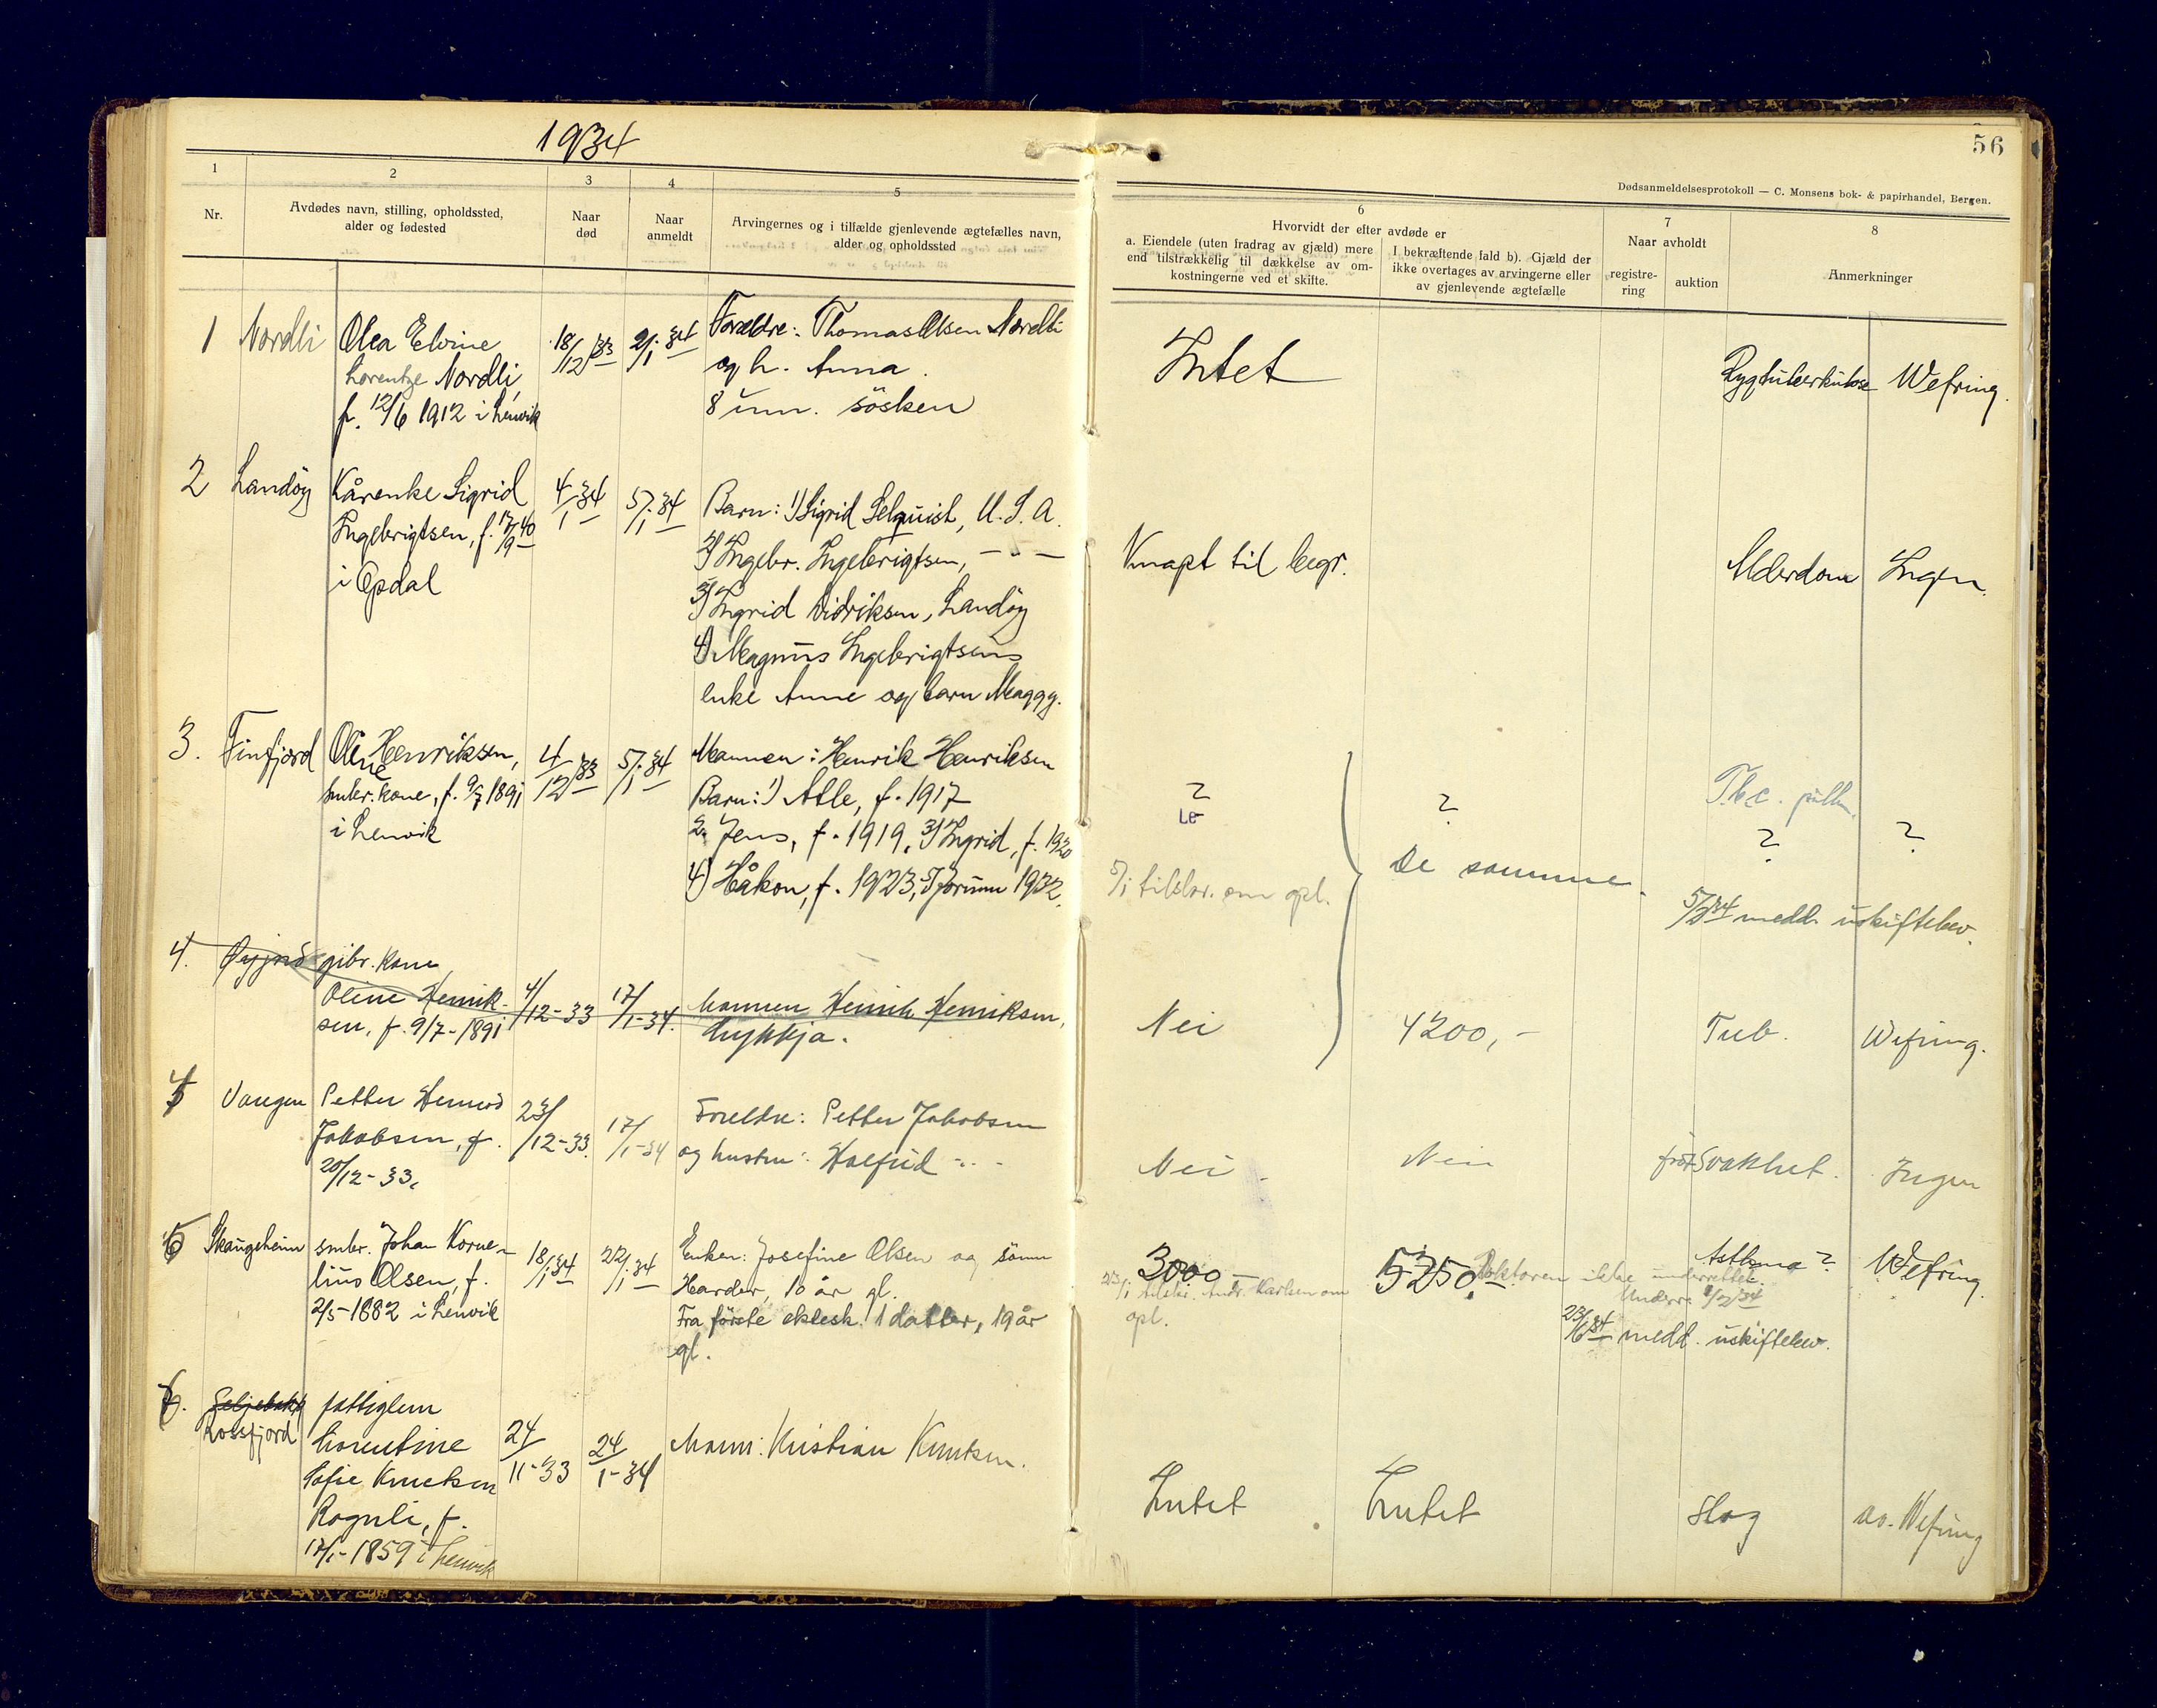 1934
56
Dødsanmeldelsesprotokoll — C. Monsens bok- & papirhandel, Bergen.
1
Nr.
2
Avdødes navn, stilling, opholdssted,
alder og fødested
3
Naar
død
4
Naar
anmeldt
5
Arvingernes og i tilfælde gjenlevende ægtefælles navn,
alder og opholdssted
6
Hvorvidt der efter avdøde er
a. Eiendele (uten fradrag av gjæld) mere
end tilstrækkelig til dækkelse av om-
kostningerne ved et skifte.
I bekræftende fald b). Gjæld der
ikke overtages av arvingerne eller
av gjenlevende ægtefælle
7
Naar avholdt
registre-
ring
auktion
8
Anmerkninger
1 Nordli
Olea Elvine
Lorentze Nordli,
f. 12/6 1912 i Lenvik
18/12 33
2/1 34
Forældre: Thomas Olsen Nordli
og h. Anna.
8 unn. søsken
Intet
Rygtuberkulose
Wefring.
2 Landøy
Kårenke Sigrid
Ingebrigtsen, f. 17/9 40
i Opdal
4/1 34
5/1 34
Barn: 1) Sigrid Selquist, U.S.A.
2) Ingebr. Ingebrigtsen, — " —
3) Ingrid Vidriksen, Landøy
4) Magnus Ingebrigtsens
enke Anne og barn Maggy.
Knapt til begr.
Alderdom
Ingen.
3. Finfjord
Oline Henriksen,
småbr. kone, f. 9/7 1891
i Lenvik
4/12 33
5/1 34
Mannen: Henrik Henriksen
Barn: 1) Atle, f. 1917
2. Jens, f. 1919, 3) Ingrid, f. 1920
4) Håkon, f. 1923, 5) Jorunn 1932.
?
5/1 tilskr. om opl.
?
De samme.
Tbc. pulm.
?
?
5/3 34 medd. uskiftebev.
4.
gbr. kone
Oline Henrik-
sen, f. 9/7-1891
4/12-33
17/1-34.
Mannen Henrik Henriksen,
Lykkja.
Nei
4200,-
Tub.
Wefring.
4 Vangen
Petter
Jakobsen, f.
20/12-33.
23/12-33.
17/1-34
Foreldre: Petter Jakobsen
og hustru: Halfrid -"-
Nei -
Nei
Svakhet.
Ingen
5 Skaugheim
småbr. Johan Korne-
lius Olsen, f.
2/5-1882 i Lenvik
18/1 34
22/1 34
Enken: Josefine Olsen og sønn
Hardar, 10 år gl.
Fra første ektesk. 1 datter, 19 år
gl.
3000,-
23/1 tilskr. Andr. Karlsen om
opl.
5250,-
Asthma?
Doktoren ikke underrettet.
Wefring.
23/6 34 medd. uskiftebev.
6. Seljebakk
Rossfjord
fattiglem
Lorentine
Sofie Knutsen
Rognli, f.
17/1-1859 i Lenvik
24/11-33
24/1-34
Mann: Kristian Knutsen.
Intet
Intet
Slag
av. Wefring